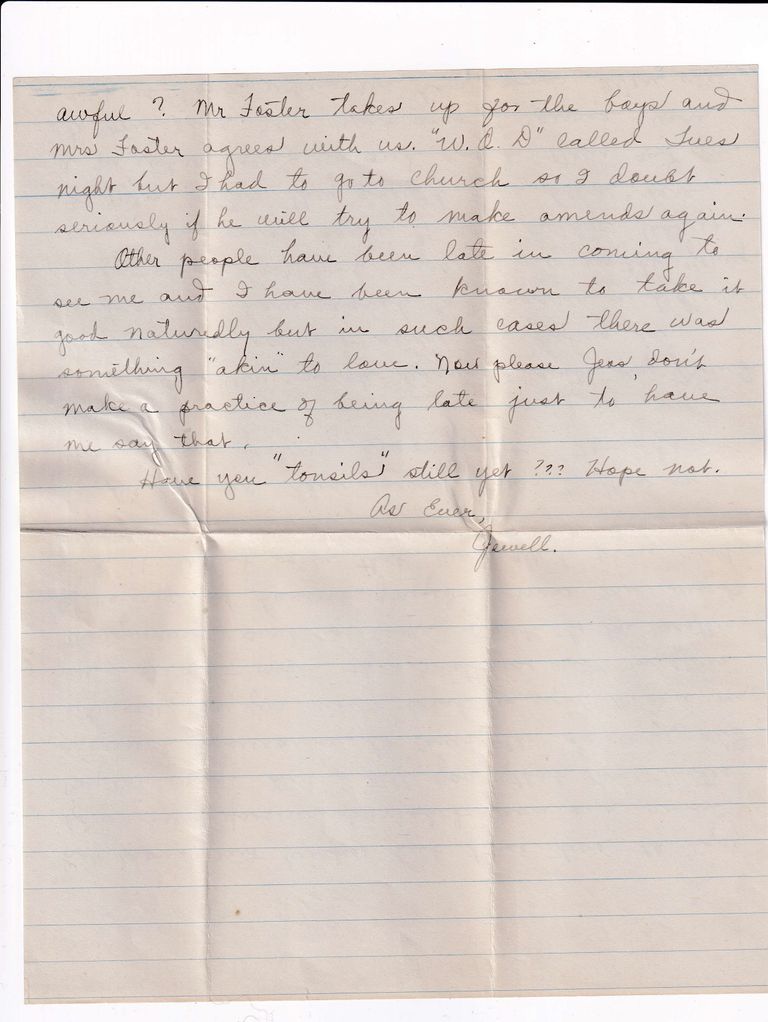 awful? Mr Foster takes up for the boys and
Mrs Foster agrees with us. "W. A. D" called Tues
night but I had to go to church so I doubt
seriously if he will try to make amends again.
Other people have been late in coming to
see me and I have been known to take it
good naturedly but in such cases there was
something "akin" to love. Now please Jess don't
make a practice of being late just to have
me say that.
Have you "tonsils" still yet ??? Hope not.
As Ever,
Jewell.